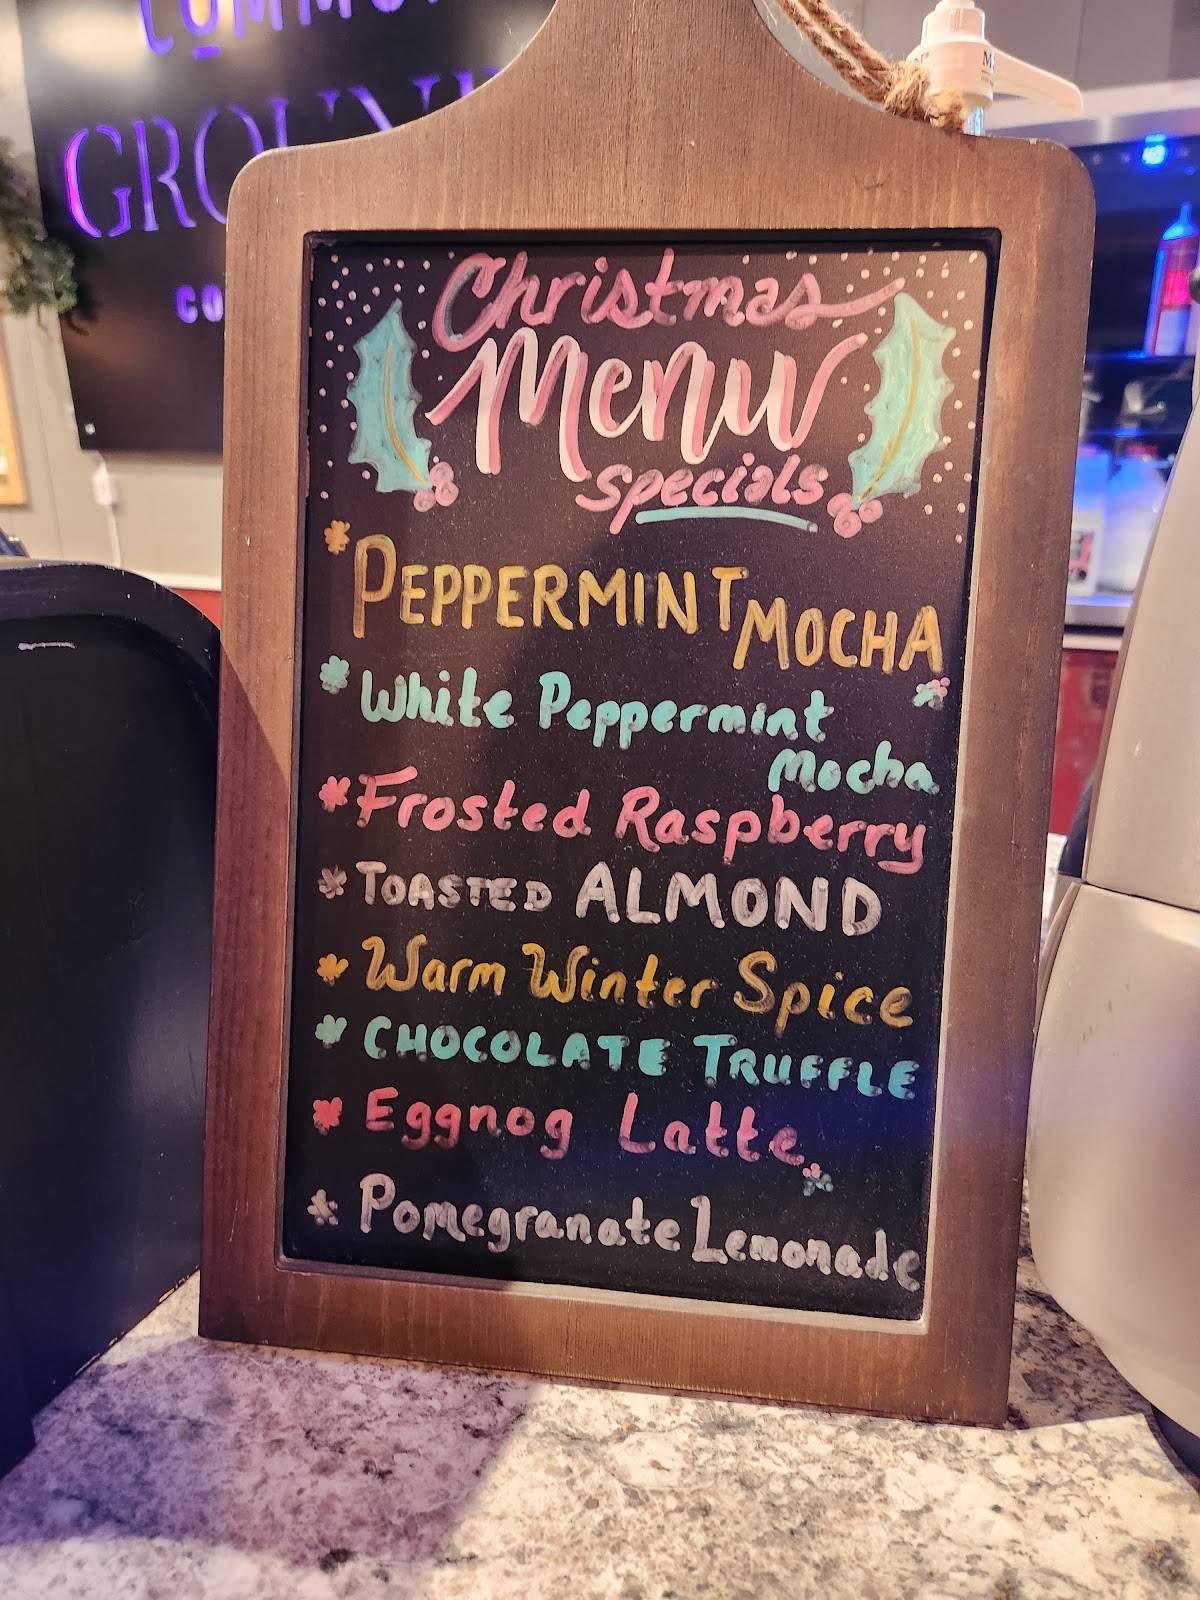 COMMON
GROUN
CO
Christmas
Menu
specials
PEPPERMINT MOCHA
White Peppermint
Mocha
Frosted Raspberry
TOASTED ALMOND
Warm Winter Spice
CHOCOLATE TRUFFLE
Eggnog Latte
Pomegranate Lemonade